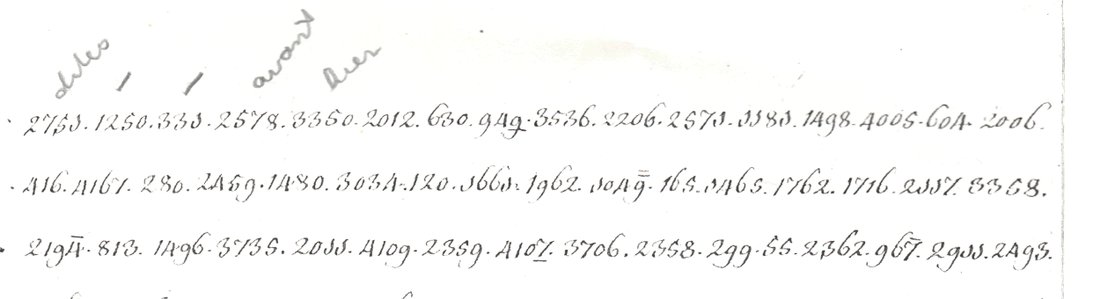 dites / / avant hier
2751. 1250. 331. 2578. 3350. 2012. 630. 949. 3536. 2206. 2571. 1181. 1498. 4005. 604. 2006.
416. 4167. 280. 2459. 1480. 3034. 120. 1661. 1962. 1049. 165. 1465. 1762. 1716. 2117. 3358.
2194. 813. 1496. 3735. 2011. 4109. 2359. 4107. 3706. 2358. 299. 55. 2362. 967. 2911. 2493.